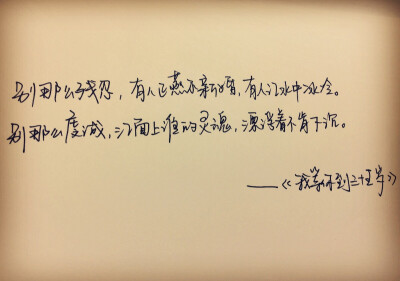 别那么残忍，有人正燕尔新婚，有人江水中冰冷。
别那么虔诚，江面上谁的灵魂，漂浮着不肯下沉。
——《我等你到三十五岁》